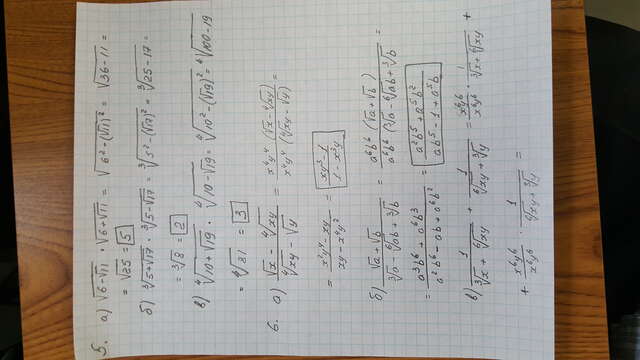 5. а) √(6-√11) · √(6+√11) = √(6²-(√11)²) = √(36-11) =
= √25 = 5
б) ³√(5+√17) · ³√(5-√17) = ³√(5²-(√17)²) = ³√(25-17) =
= ³√8 = 2
в) ⁴√(10+√19) · ⁴√(10-√19) = ⁴√(10²-(√19)²) = ⁴√(100-19)
= ⁴√81 = 3
6. а) (√x - ⁴√(xy))/(⁴√(xy) - √y) = x⁴y⁴(√x - ⁴√(xy))/x⁴y⁴(⁴√(xy) - √y) =
= (x²y⁴ - xy)/(xy - x⁴y²) = (xy³-1)/(1-x³y)
б) (√a+√b)/(³√a - ⁶√(ab) + ³√b) = a⁶b⁶(√a+√b)/a⁶b⁶(³√a - ⁶√(ab) + ³√b) =
= (a³b⁶+a⁶b³)/(a²b⁶-ab+a⁶b²) = (a²b⁵+a⁵b²)/(ab⁵-1+a⁵b)
в) 1/(³√x+⁶√(xy)) + 1/(⁶√(xy)+³√y) = x⁶y⁶/x⁶y⁶ · 1/(³√x+⁶√(xy)) +
+ x⁶y⁶/x⁶y⁶ · 1/(⁶√(xy)+³√y) =